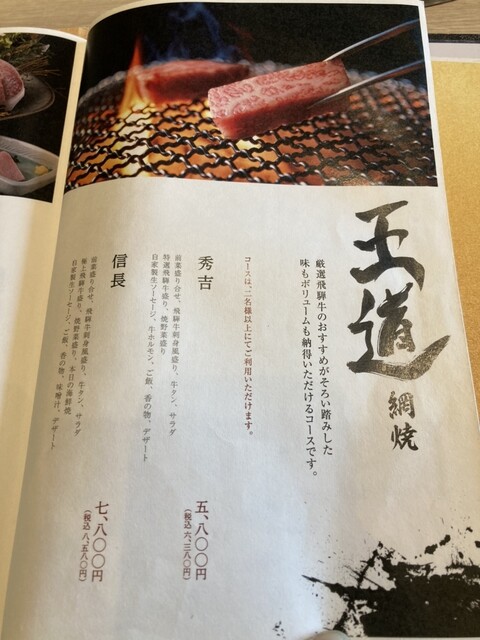 王道
網焼
厳選飛騨牛のおすすめがそろい踏みした
味もボリュームも納得いただけるコースです。
コースは、二名様以上にてご利用いただけます。
秀吉
前菜盛り合せ、飛騨牛刺身風盛り、牛タン、サラダ
特選飛騨牛盛り、焼野菜盛り
自家製生ソーセージ、牛ホルモン、ご飯、香の物、デザート
五、八〇〇円
(税込 六、三八〇円)
信長
前菜盛り合せ、飛騨牛刺身風盛り、牛タン、サラダ
極上飛騨牛盛り、焼野菜盛り、本日の海鮮焼
自家製生ソーセージ、ご飯、香の物、味噌汁、デザート
七、八〇〇円
(税込 八、五八〇円)